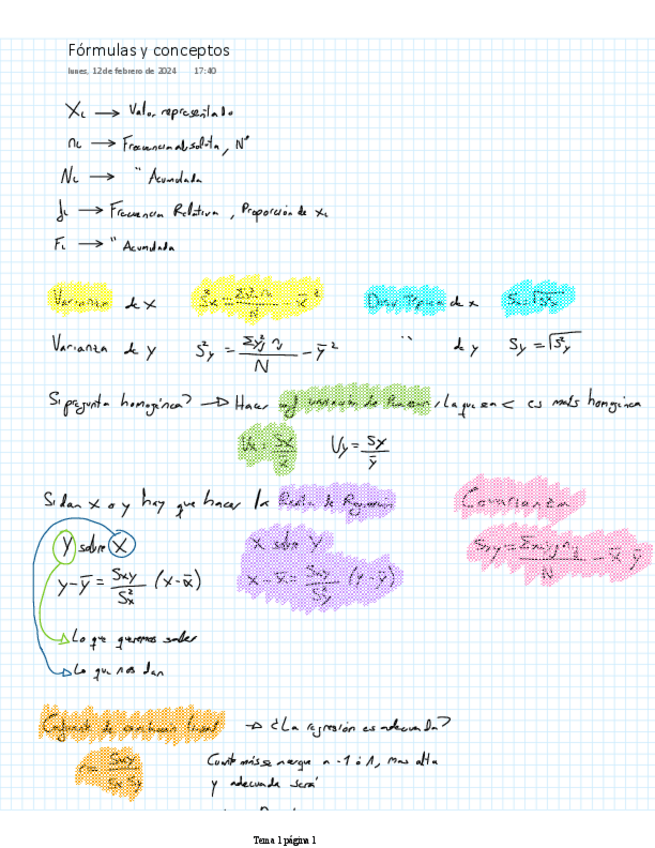 Fórmulas y conceptos
lunes, 12 de febrero de 2024 17:40
Xi → Valor representado
ni → Frecuencia absoluta, Nº
Ni → " Acumulada
fi → Frecuencia Relativa, Proporción de xi
Fi → " Acumulada
Varianza de x S²x = Σx²i ni / N - x̄² Desv Típica de x Sx = √S²x
Varianza de y S²y = Σy²j nj / N - ȳ² " de y Sy = √S²y
Si pregunta homogénea? → Hacer coef variación de Pearson, la que sea < es más homogénea
Vx = Sx / x̄ Vy = Sy / ȳ
Si dan x o y hay que hacer la Recta de Regresión Covarianza
Y sobre X X sobre Y Sxy = Σxi yj nij / N - x̄ ȳ
y - ȳ = Sxy / S²x (x - x̄) x - x̄ = Sxy / S²y (y - ȳ)
Lo que queremos saber
Lo que nos dan
Coeficiente de correlación lineal → ¿La regresión es adecuada?
r = Sxy / Sx Sy Cuanto más se acerque a -1 ó 1, mas alta
y adecuada será
Tema 1 página 1